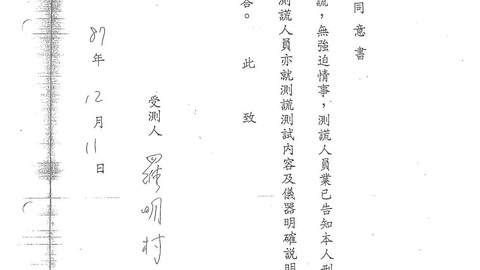 同意書
謊，無強迫情事，測謊人員業已告知本人刑
測謊人員亦就測謊測試內容及儀器明確說明
答。此致
受測人 羅明村
87年12月11日